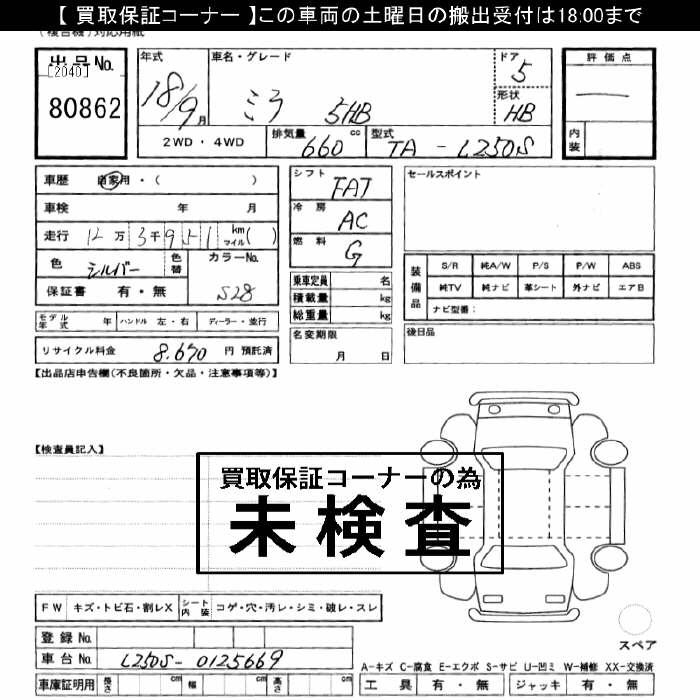 【 買取保証コーナー 】この車両の土曜日の搬出受付は18:00まで
(複合機)対応用紙
出品No.
[2040]
80862
年式
18/9月
車名・グレード
ミラ 5HB
ドア
5
形状
HB
評価点
内装
2WD・4WD
排気量 660 cc
型式 TA-L250S
車歴 自家用・( )
車検 年 月
走行 12万3千951 km マイル( )
色 シルバー 色替
カラーNo. S28
保証書 有・無
モデル年式 年 ハンドル 左・右 ディーラー・並行
リサイクル料金 8.670 円 預託済
シフト FAT
冷房 AC
燃料 G
乗車定員 名
積載量 kg
総重量 kg
名変期限
月 日
セールスポイント
装備品
S/R 純A/W P/S P/W ABS
純TV 純ナビ 革シート 外ナビ エアB
ナビ型番:
後日品
【出品店申告欄(不良箇所・欠品・注意事項等)】
【検査員記入】
買取保証コーナーの為
未検査
FW キズ・トビ石・割レX シート内装 コゲ・穴・汚レ・シミ・破レ・スレ
登録No.
車台No. L250S-0125669
車庫証明用 長さ cm 幅 cm 高さ cm
スペア
A-キズ C-腐食 E-エクボ S-サビ U-凹ミ W-補修 XX-交換済
工具 有・無 ジャッキ 有・無